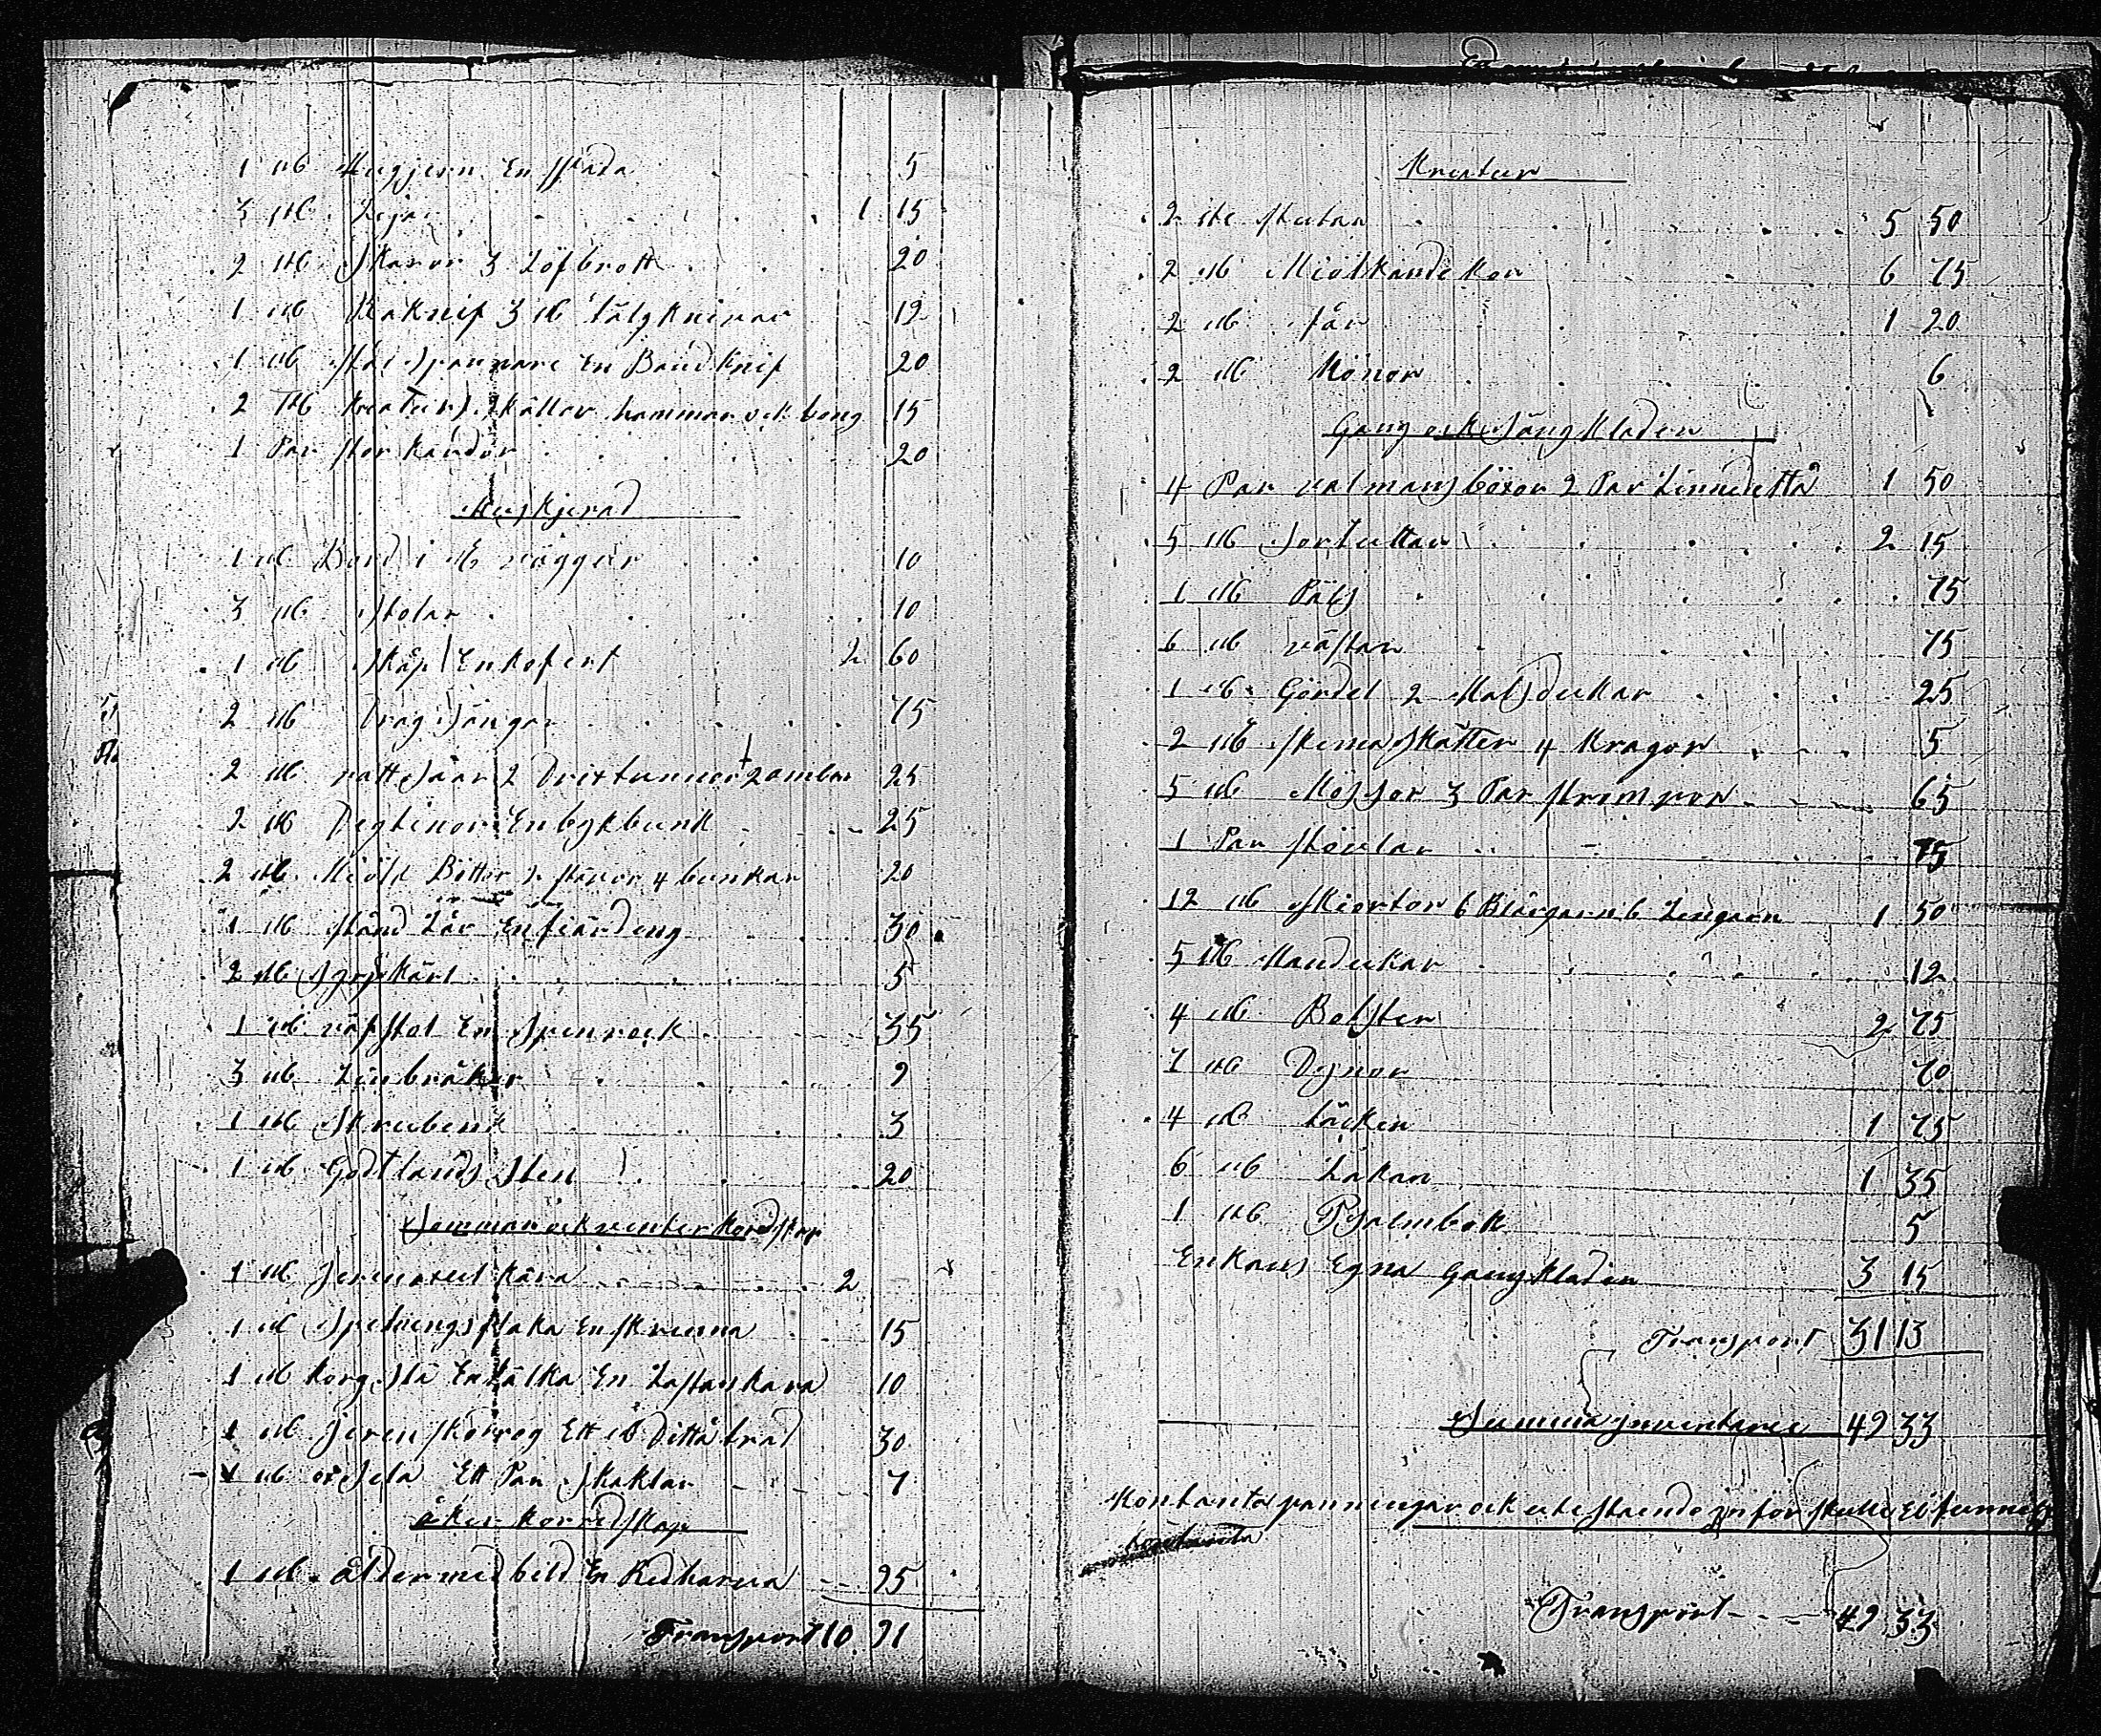 1 st Hugjern En spada 5
3 st Lijar 1 15
2 st Skäror 3 Löfbrott 20
1 st Rakneif 3 st tälgknivar 19
1 st Spannare En Bandknif 20
2 st kreaturs skällor hammar ock tong 15
1 Par stor kardor 20
Huskjerad
1 st Bord i st väggur 10
3 st Stolar 10
1 st Skåp En kofert 2 60
2 st Drag Sängar 75
2 st vatt Såar 2 Drixtunnor 2 ambar 25
2 st Degtinor En bykbunk 25
2 st Miölk Bötter 2 stävor 4 bunkar 20
1 st stånd Kar En fiärdeng 30
2 st Syrpkärl 5
1 st väfstol En Spenrock 35
3 st Linbråker 9
1 st Skrubenk 3
1 st Godtlands Sten 20
Sommar ock venter kordskap
1 st Jerenaxel kära 2
1 st Spednings flaka En skrenna 15
1 st korg Sla En kälka En Lastaskara 10
1 st Jeren skodrog Ett st Ditto träd 30
1 st ox Sela Ett Par Skaklar 7
åker korredskap
1 st ålder med bild En Redharva 25
Transport 10 91
Kreatur
2 st stutar 5 50
2 st Miölkande kor 6 75
2 st får 1 20
2 st Hönor 6
Gang ock Sängkläder
4 Par valmans böxor 2 Par Linneditto 1 50
5 st Sortuttar 2 15
1 st Päls 75
6 st västar 75
1 st Gördel 2 Halsdukar 25
2 st Skinnskätter 4 Kragor 5
5 st Mössor 3 Par strompor 65
1 Par stövlar 75
12 st Skiortor 6 Blärgarn 6 Lingarn 1 50
5 st Handukar 12
4 st Bolster 2 75
7 st Dynor 70
4 st täcken 1 75
6 st Lakan 1 35
1 st Psalmbok 5
Enkans Egna Gangkläder 3 15
Transport 31 13
Summa Inventarie 49 33
Kontanta panningar ock utestaende infor skulle Ei funnets
kontanta
Transport 49 33